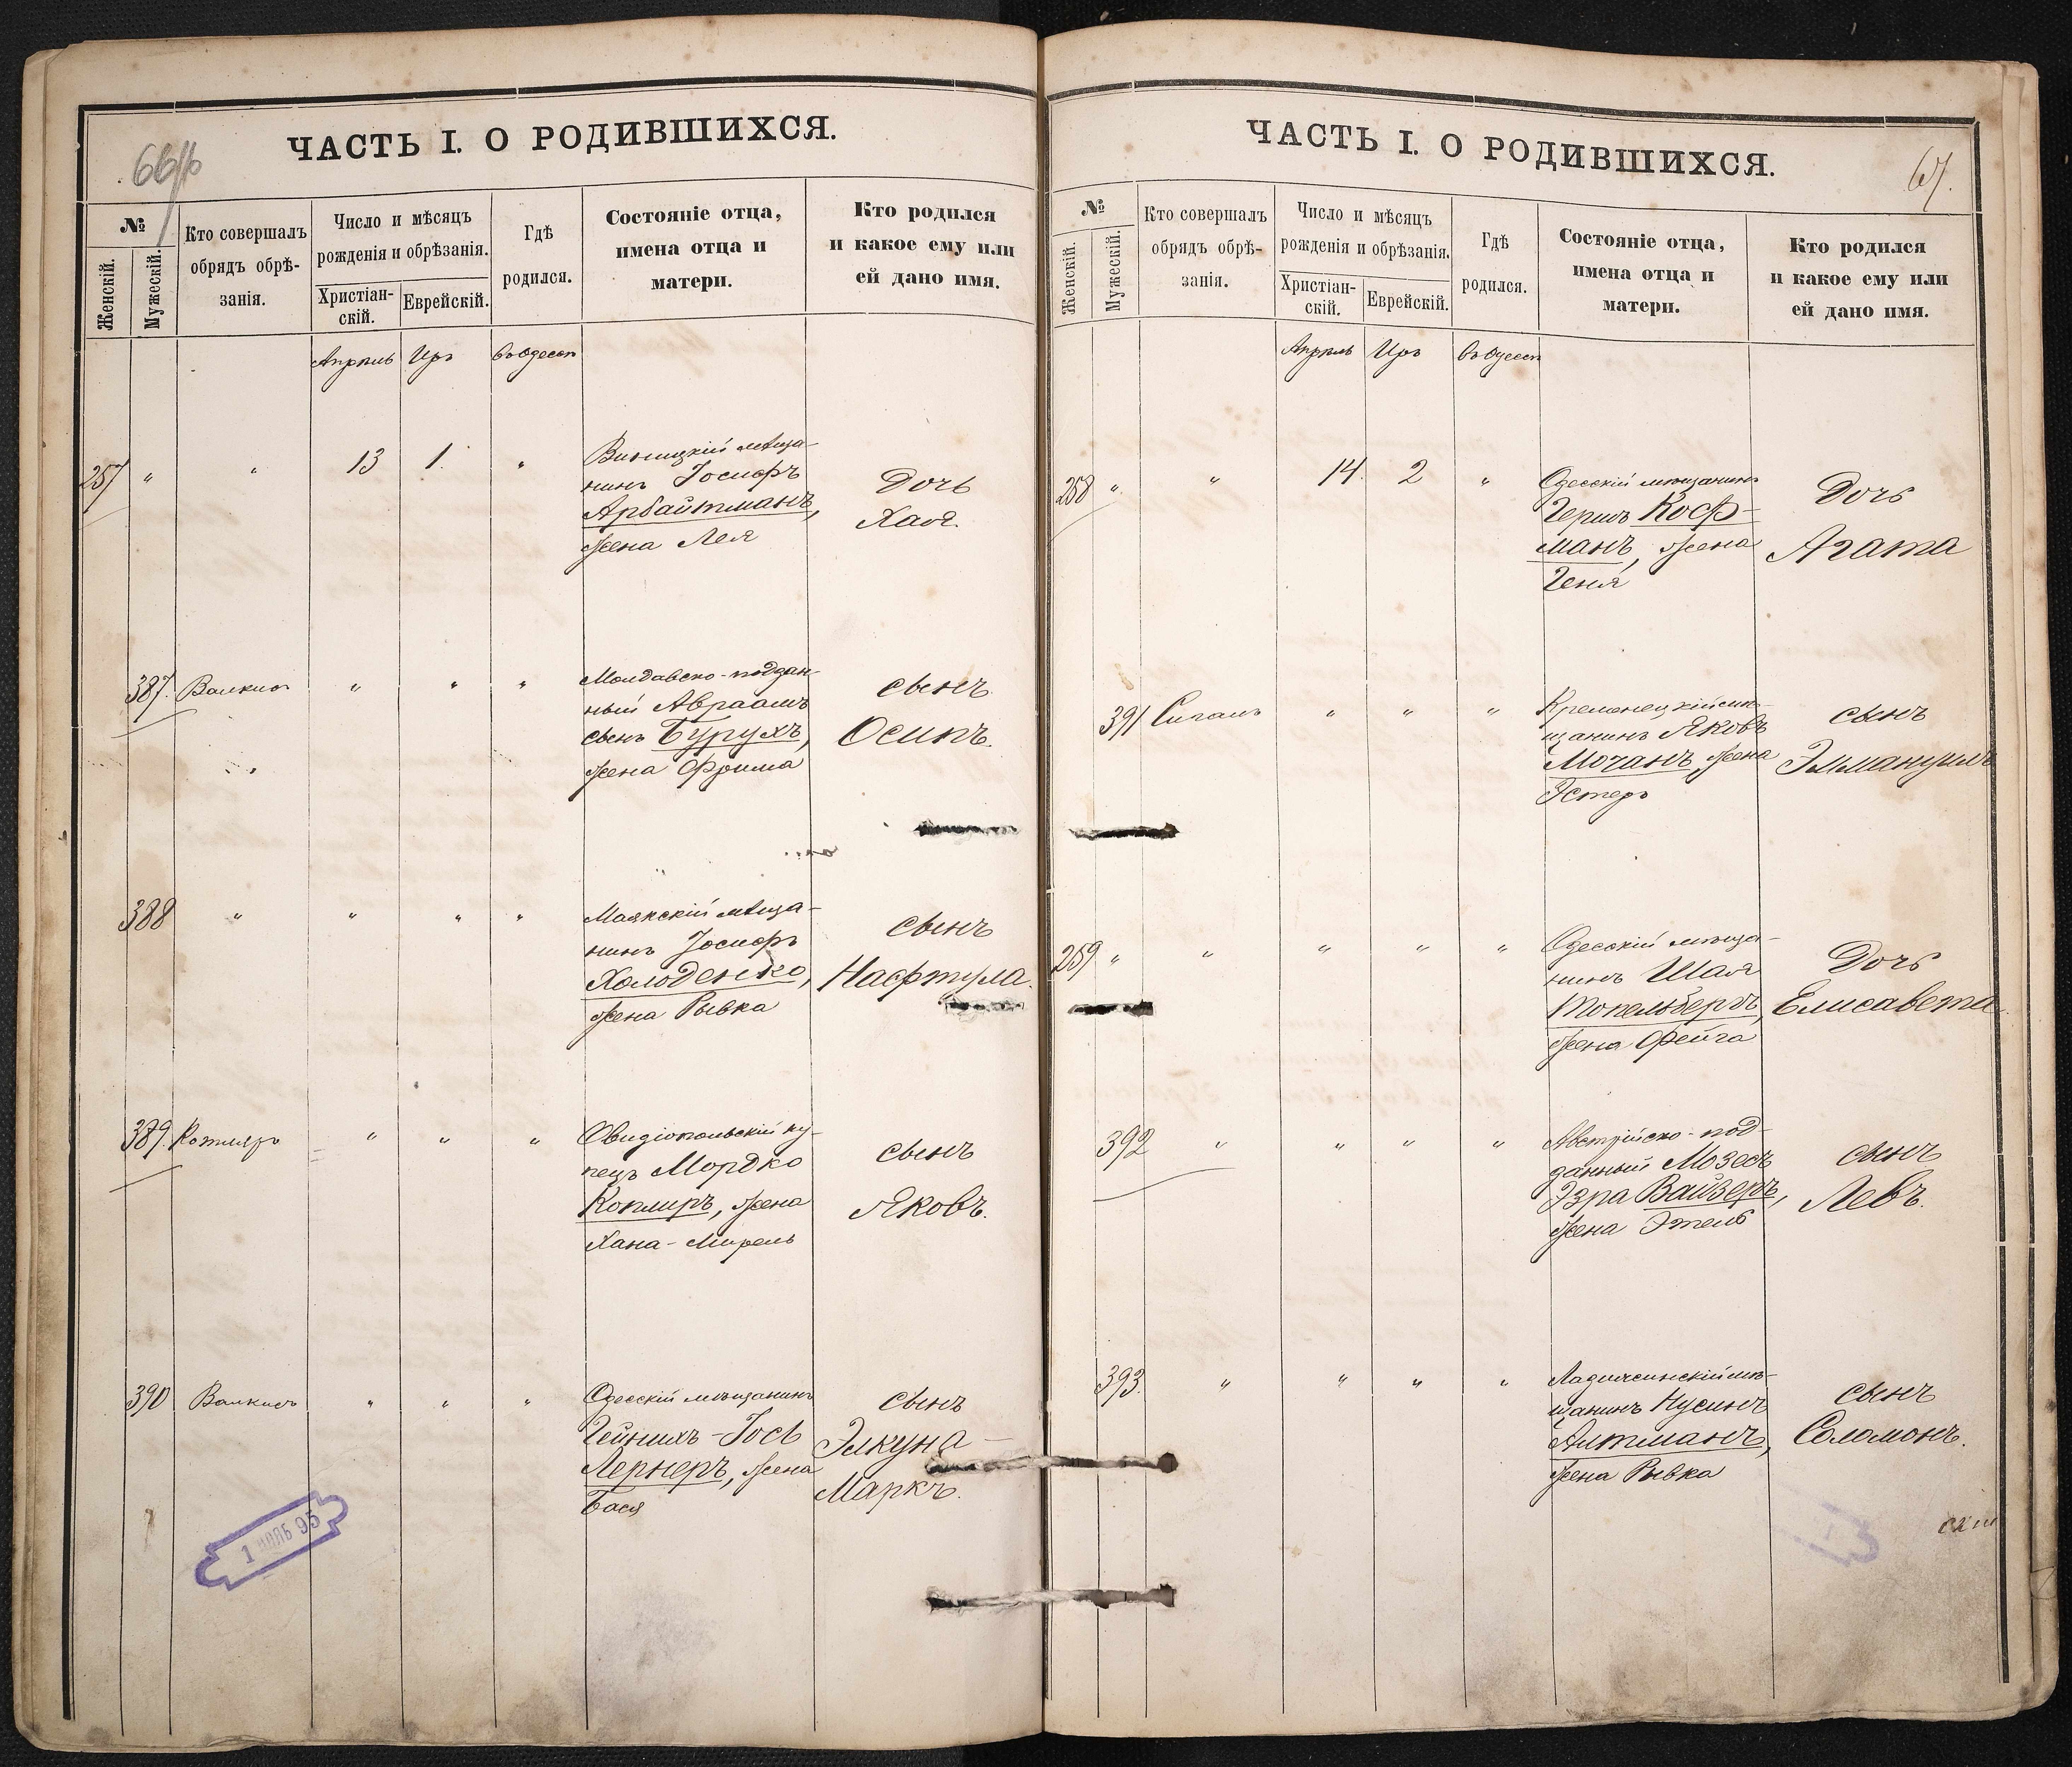 66 об
ЧАСТЬ I. О РОДИВШИХСЯ.
№
Женскій.
Мужескій.
Кто совершалъ
обрядъ обрѣ-
занія.
Число и мѣсяцъ
рожденія и обрѣзанія.
Христіан-
скій.
Еврейскій.
Гдѣ
родился.
Состояніе отца,
имена отца и
матери.
Кто родился
и какое ему или
ей дано имя.
Апрѣль Иръ въ Одессѣ
257 " " 13 1. "
Винницкій мѣща-
нинъ Іосифъ
Арбайтманъ,
жена Лея
Дочь
Хая.
387. Валкисъ " " "
Молдавско-поддан-
ный Авраамъ
сынъ Бурухъ,
жена Фрима
сынъ
Осипъ.
388 " " " "
Маякскій мѣща-
нинъ Іосифъ
Холоденко,
жена Рывка
сынъ
Нафтула.
389. Котляръ " " "
Овидіопольскій ку-
пецъ Мордко
Коплиръ, жена
Хана-Мирель
сынъ
Яковъ.
390 Валкисъ " " "
Одесскій мѣщанинъ
Гейнихъ-Іось
Лернеръ, жена
Бася
сынъ
Элкуна-
Маркъ.
1 95
67.
ЧАСТЬ I. О РОДИВШИХСЯ.
№
Женскій.
Мужескій.
Кто совершалъ
обрядъ обрѣ-
занія.
Число и мѣсяцъ
рожденія и обрѣзанія.
Христіан-
скій.
Еврейскій.
Гдѣ
родился.
Состояніе отца,
имена отца и
матери.
Кто родился
и какое ему или
ей дано имя.
Апрѣль Иръ въ Одессѣ
258 " " 14. 2 "
Одесскій мѣщанинъ
Гершъ Коф-
манъ, жена
Геня
Дочь
Агата
391 " " "
Кременецкій мѣ-
щанинъ Яковъ
Мочанъ, жена
Эстеръ
сынъ
Эммануилъ
259 " " " " "
Одесскій мѣща-
нинъ Шая
Топельбергъ,
жена Фейга
Дочь
Елисавета.
392 " " " "
Австрійско-под-
данный Мозесъ
Эзра Вайзеръ,
жена Этель
сынъ
Левъ.
393. " " " "
Ладыжинскій мѣ-
щанинъ Нусинъ
Алтманъ,
жена Рывка
сынъ
Соломонъ.